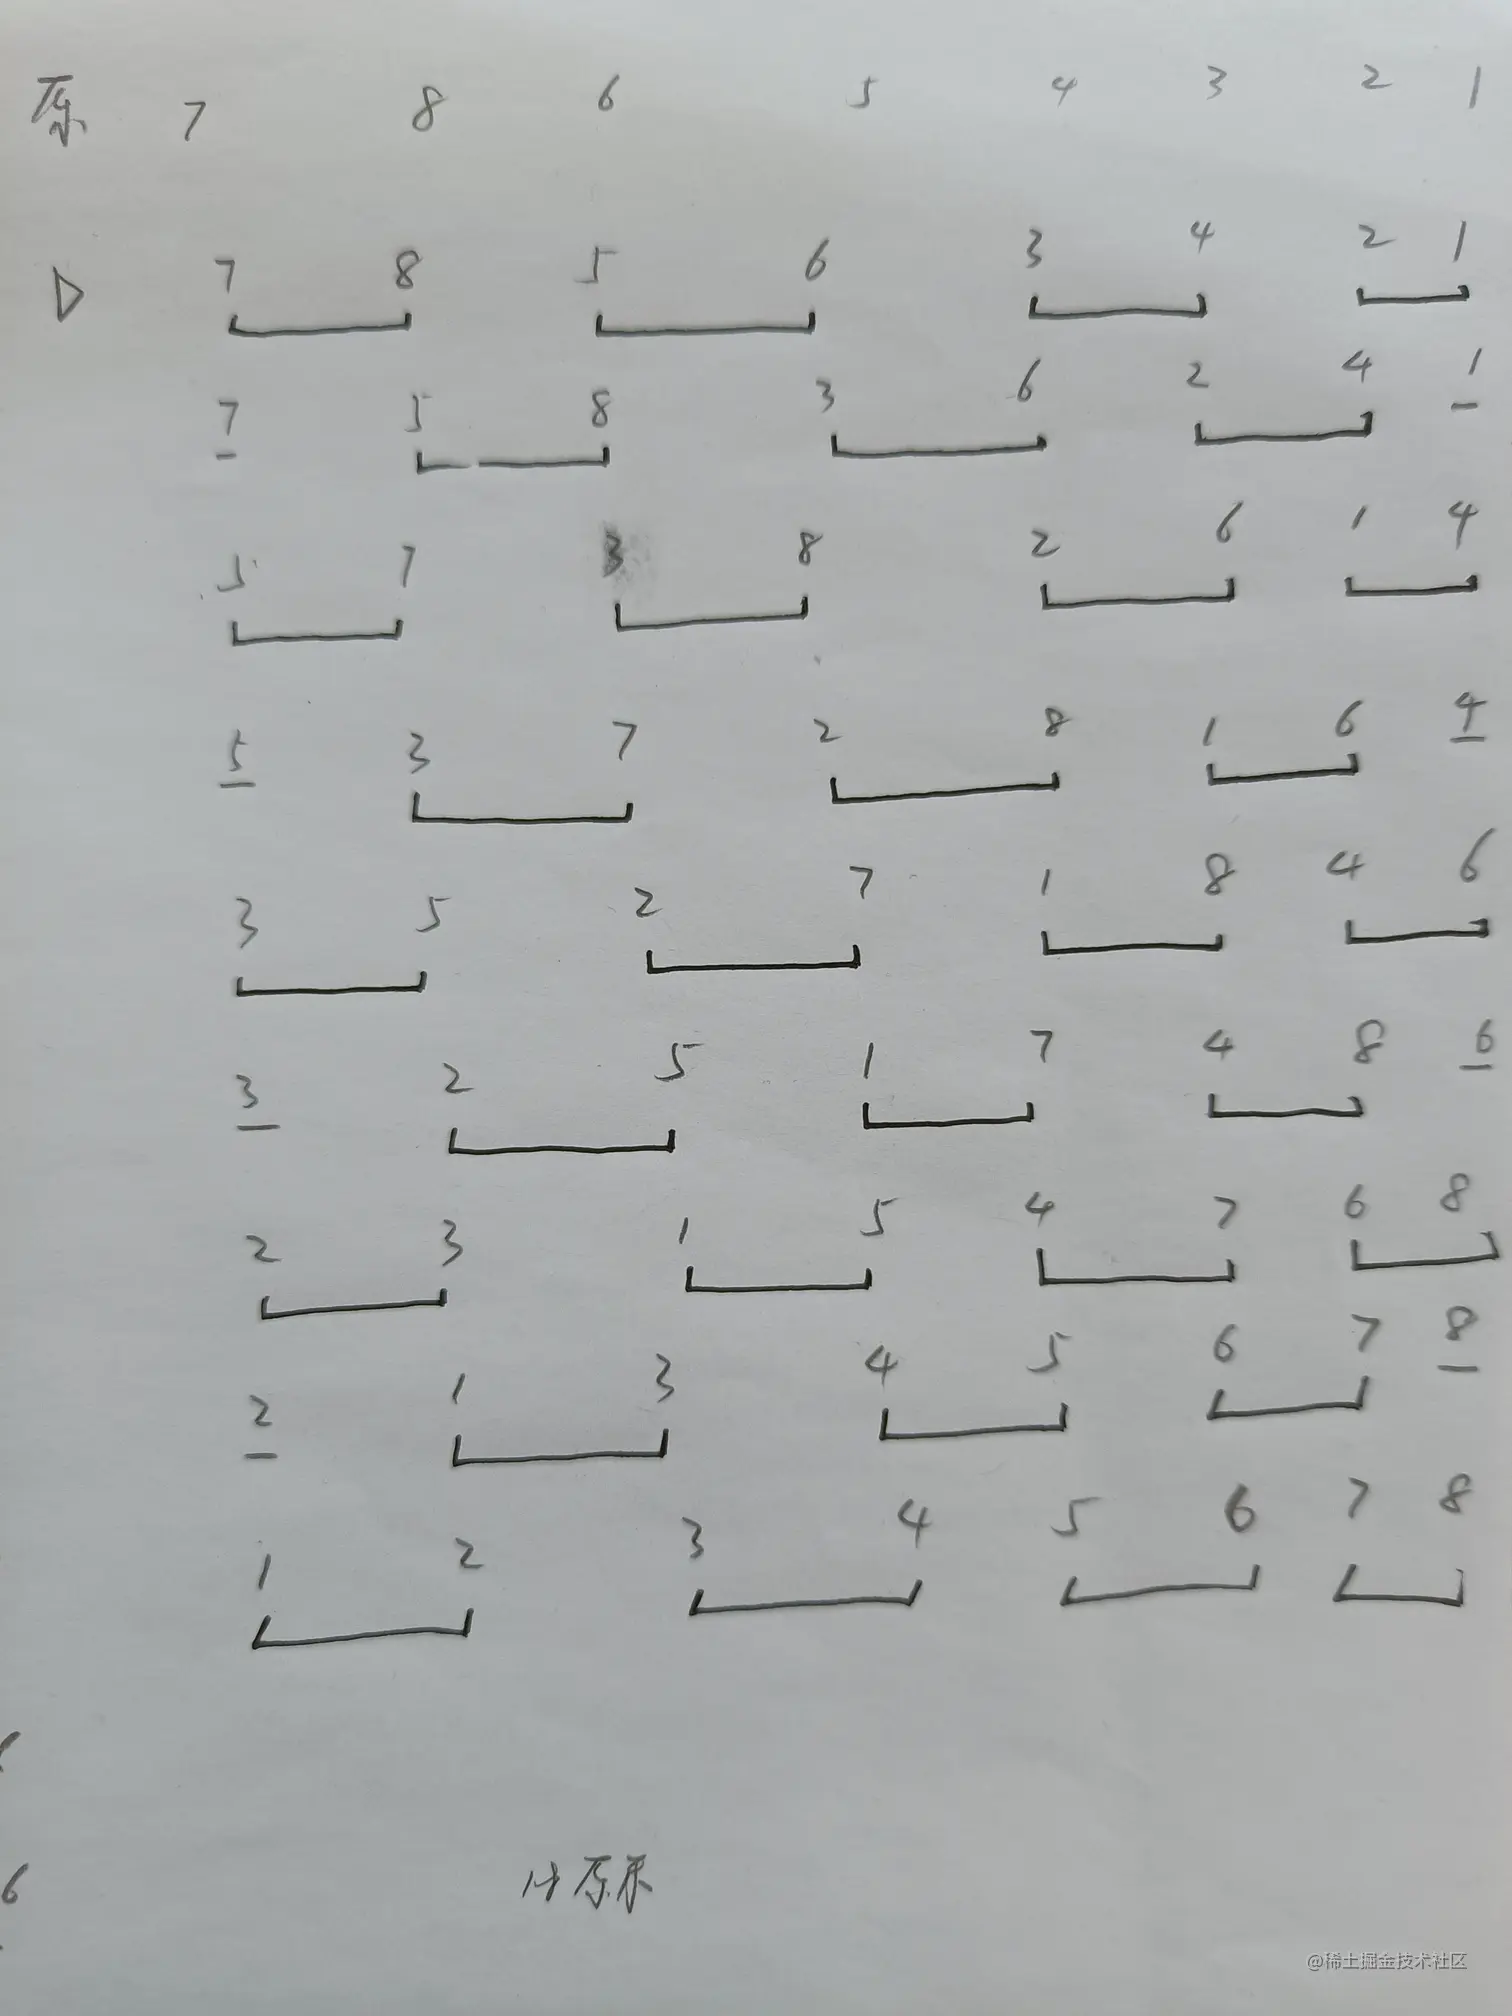 原 7 8 6 5 4 3 2 1
7 8 5 6 3 4 2 1
7 5 8 3 6 2 4 1
5 7 3 8 2 6 1 4
5 3 7 2 8 1 6 4
3 5 2 7 1 8 4 6
3 2 5 1 7 4 8 6
2 3 1 5 4 7 6 8
2 1 3 4 5 6 7 8
1 2 3 4 5 6 7 8
6
@稀土掘金技术社区